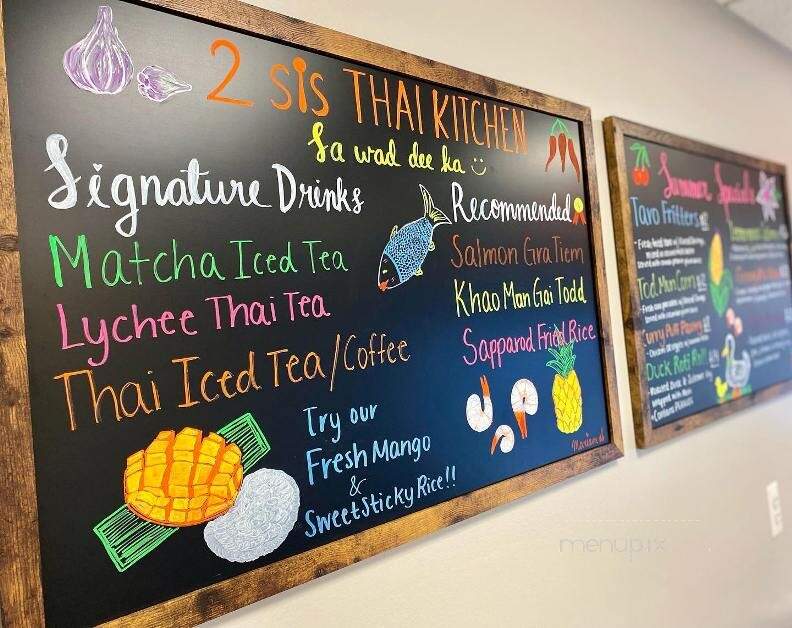 2 sis THAI KITCHEN
Sa wad dee ka
Signature Drinks
Matcha Iced Tea
Lychee Thai Tea
Thai Iced Tea/Coffee
Try our
Fresh Mango
&
Sweet Sticky Rice!!
Recommended
Salmon Gra Tiem
Khao Man Gai Todd
Sapparod Fried Rice
Summer Specials
Taro Fritters
Tod Mun Corn
Curry Puff Pastry
Duck Roti Roll
menupix